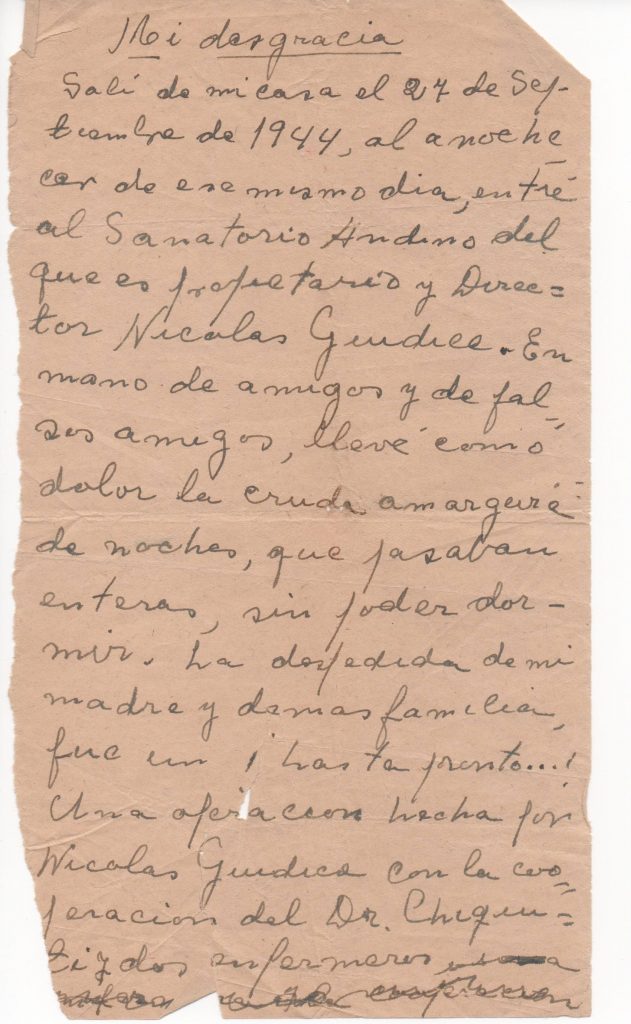 Mi desgracia
Salí de mi casa el 27 de Sep-
tiembre de 1944, al anoche
cer de ese mismo dia, entré
al Sanatorio Andino del
que es propietario y Direc=
tor Nicolas Giudice. En
mano de amigos y de fal-
sos amigos, llevé como
dolor la cruda amargura
de noches, que pasaban
enteras, sin poder dor-
mir. La despedida de mi
madre y demas familia,
fue un ¡hasta pronto...!
Una operacion hecha por
Nicolas Giudice con la coo-
peracion del Dr. Chiqui=
ti y dos enfermeros